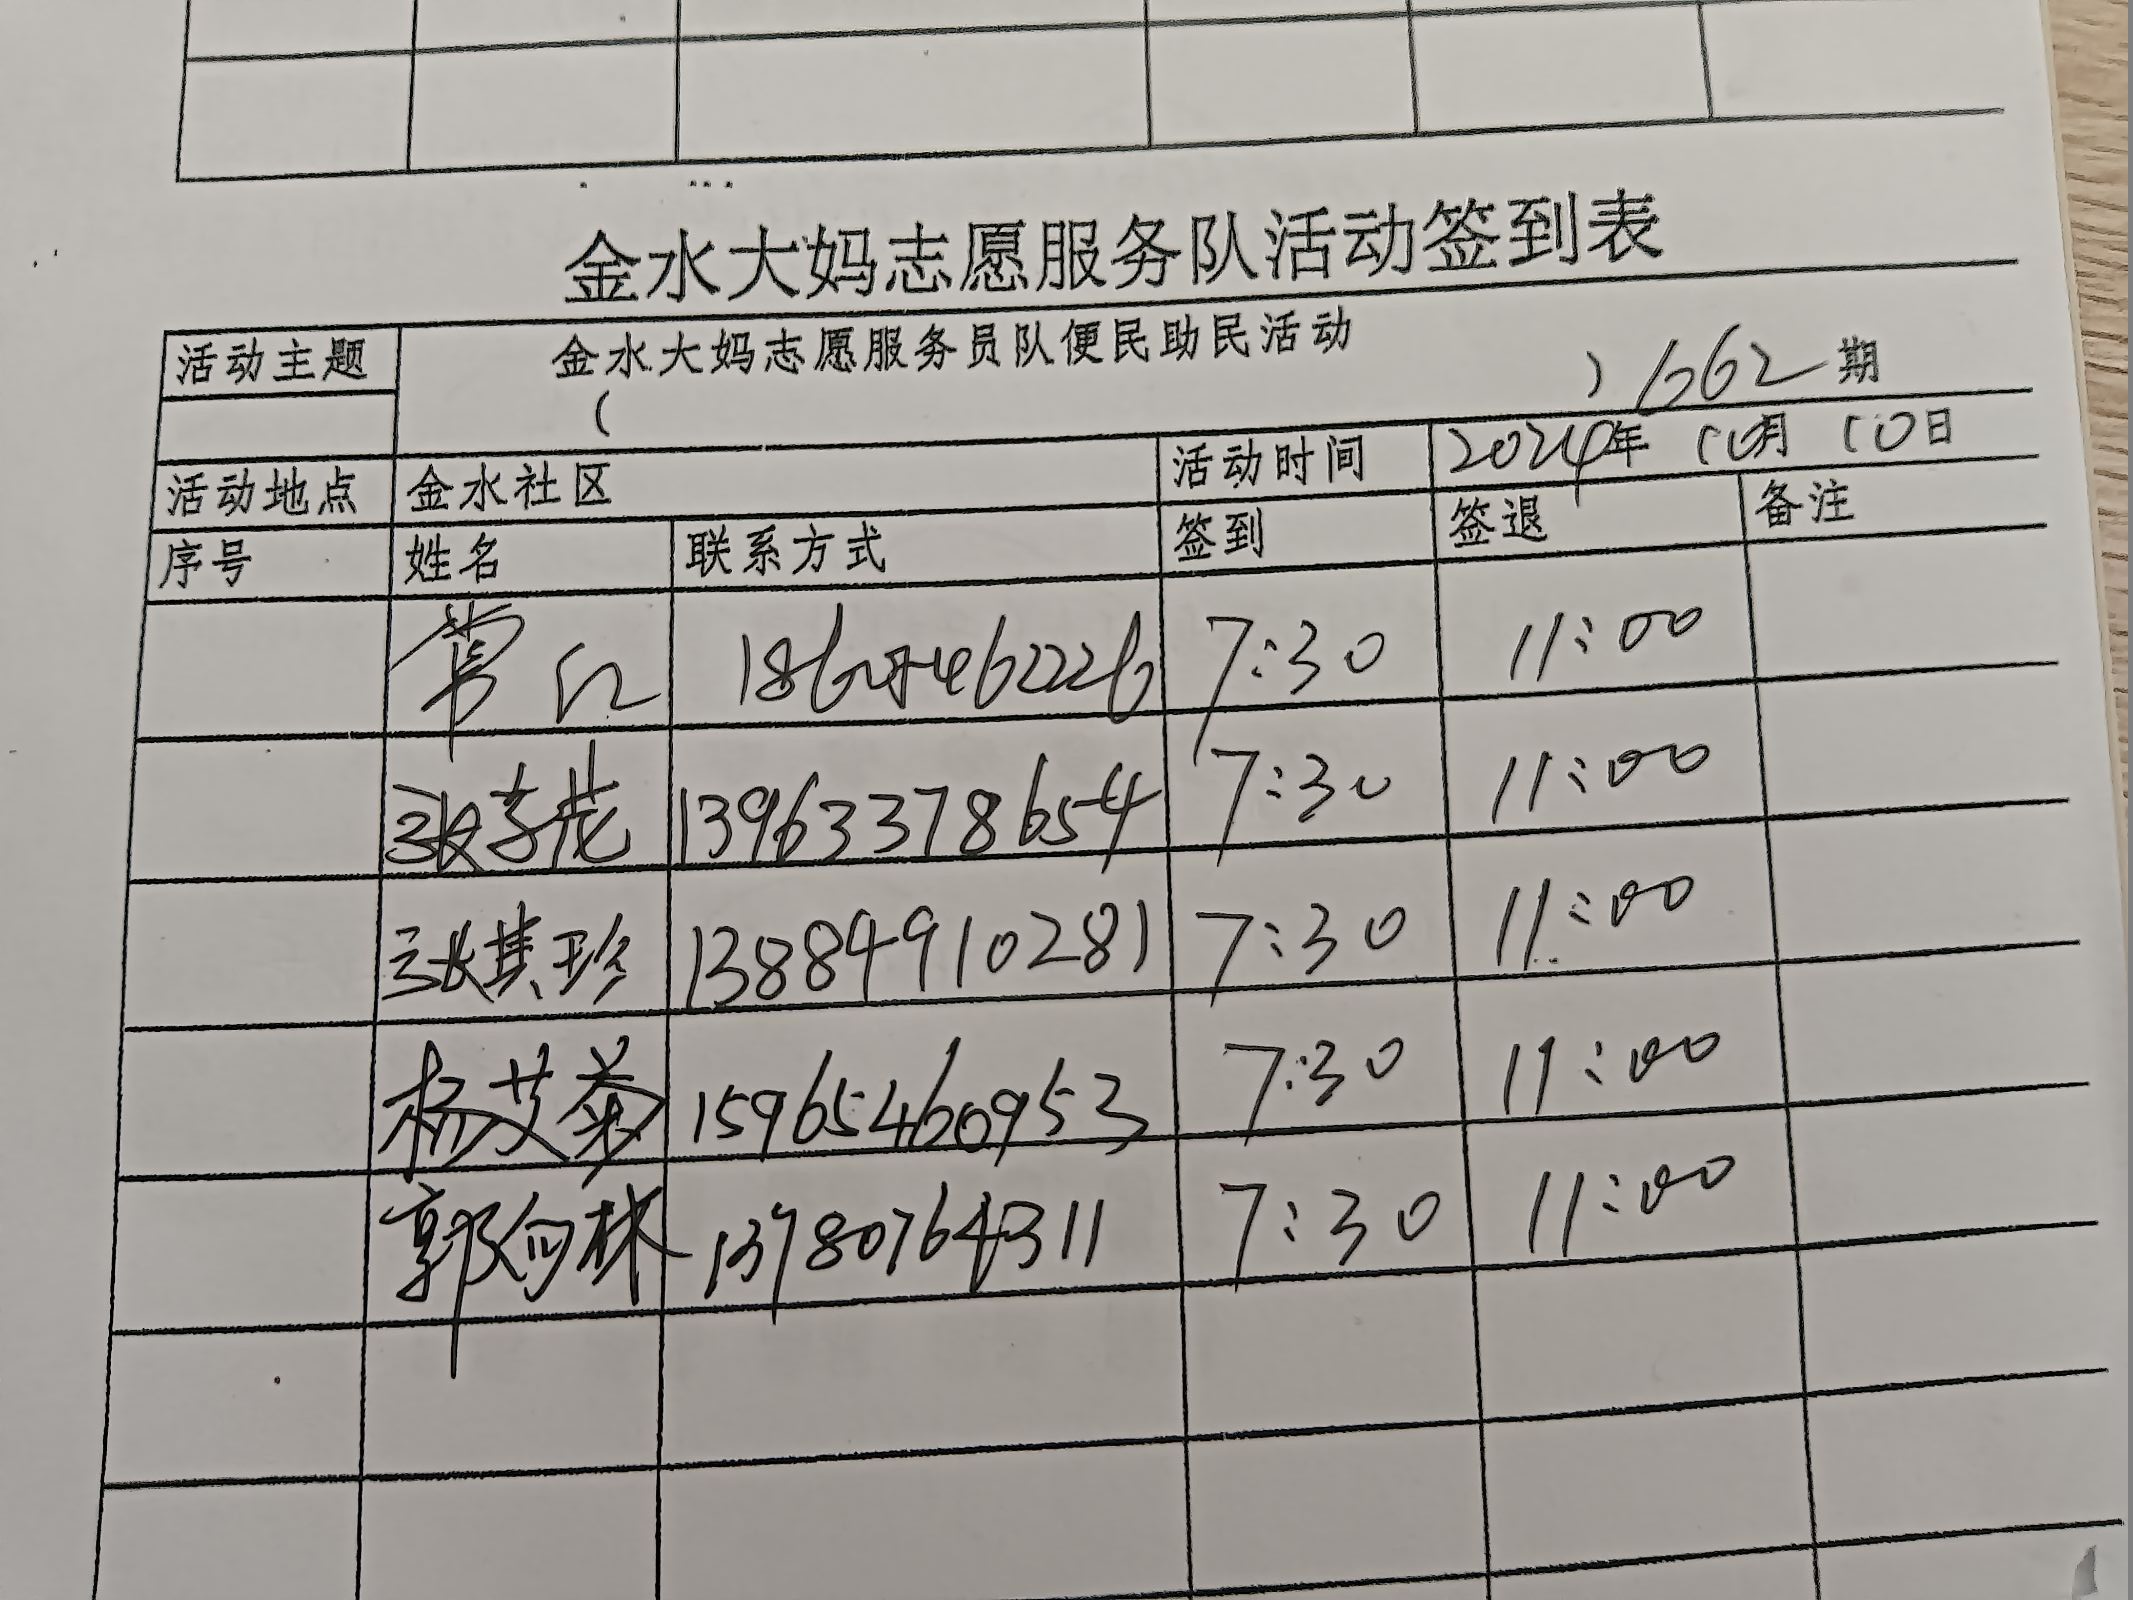 金水大妈志愿服务队活动签到表
活动主题 金水大妈志愿服务员队便民助民活动
( ) 662期
活动地点 金水社区 活动时间 2024年 10月 10日
序号 姓名 联系方式 签到 签退 备注
常红 7:30 11:00
13963378654 7:30 11:00
张其珍 13884910281 7:30 11:00
杨艾菊 15965460953 7:30 11:00
郭向林 13780764311 7:30 11:00